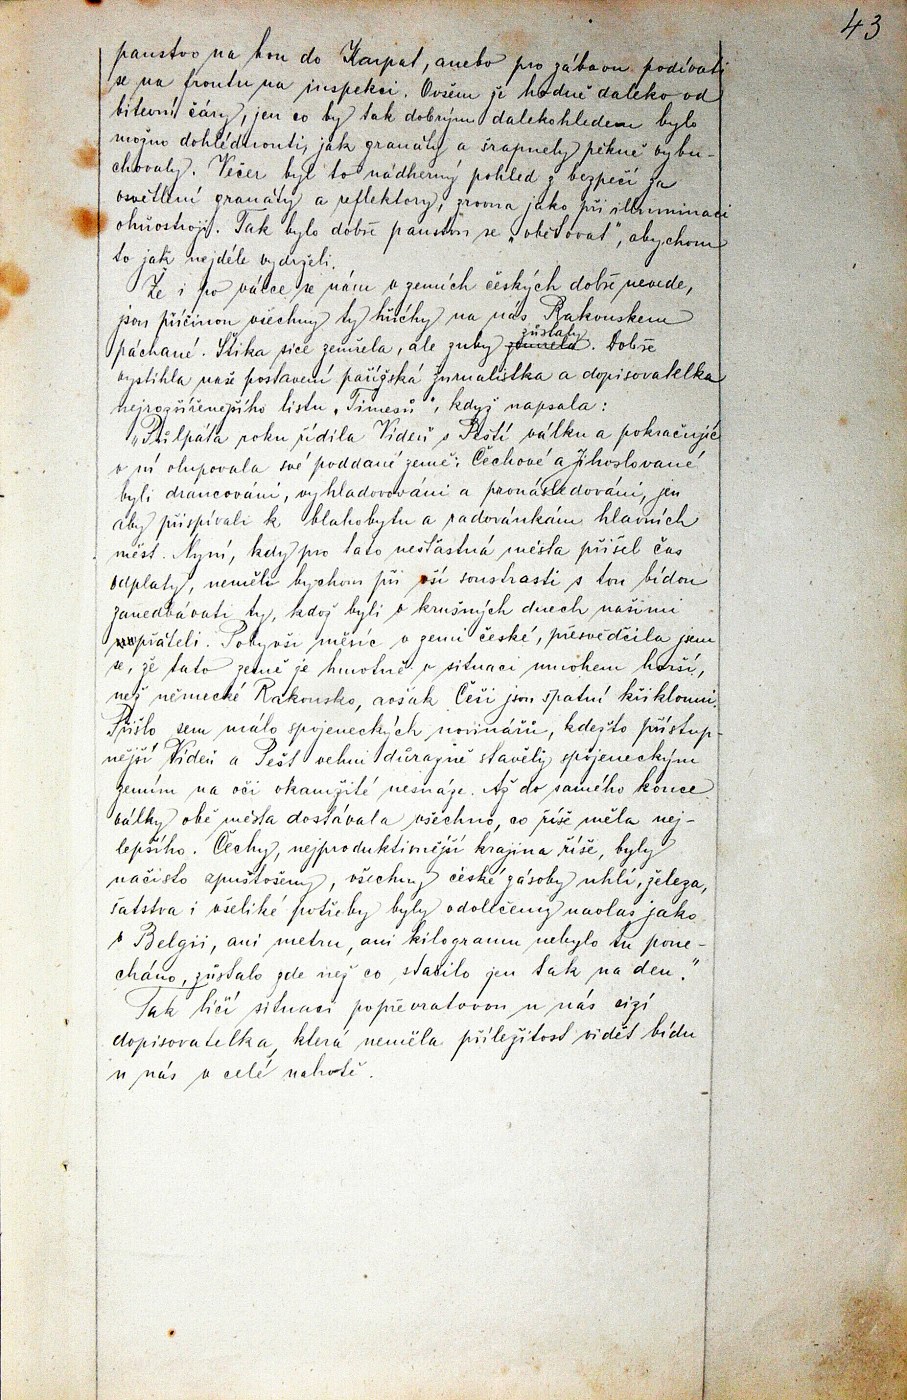 43
panstvo na hon do Karpat, anebo pro zábavu podívati
se na frontu na inspekci. Ovšem je hodně daleko od
bitevní čáry, jen co by tak dobrým dalekohledem bylo
možno dohlédnouti, jak granáty a šrapnely pěkně vybu-
chovaly. Večer byl to nádherný pohled z bezpečí za
osvětlení granáty a reflektory, zrovna jako při illuminaci
ohňostroji. Tak bylo dobře panstvu se „obětovat", abychom
to jak nejdéle vydrželi.
Že i po válce se nám v zemích českých dobře nevede,
jsou příčinou všechny ty hříchy na nás Rakouskem
páchané. Štika sice zemřela, ale zuby zůstaly. Dobře
vystihla naše postavení pařížská žurnalistka a dopisovatelka
nejrozšířenějšího listu „Timesů", když napsala:
„Půlpáta roku řídila Vídeň s Peští válku a pokračujíc
v ní olupovala své poddané země: Čechové a Jihoslované
byli drancováni, vyhladovováni a pronásledováni, jen
aby přispívali k blahobytu a radovánkám hlavních
měst. Nyní, kdy pro tato nešťastná města přišel čas
odplaty, neměli bychom při vší soustrasti s tou bídou
zanedbávati ty, kdož byli v krušných dnech našimi
přáteli. Pobyvši měsíc v zemi české, přesvědčila jsem
se, že tato země je hmotně v situaci mnohem horší,
než německé Rakousko, avšak Češi jsou špatní křiklouni.
Přišlo sem málo spojeneckých novinářů, kdežto přístup-
nější Vídeň a Pešť velmi důrazně stavěly spojeneckým
zemím na oči okamžité nesnáze. Až do samého konce
války obě města dostávala všechno, co říše měla nej-
lepšího. Čechy, nejproduktivnější krajina říše, byly
načisto zpustošeny, všechny české zásoby uhlí, železa,
šatstva i všeliké potřeby byly odvlečeny navlas jako
v Belgii, ani metru, ani kilogramu nebylo tu pone-
cháno, zůstalo zde než co stačilo jen tak na den."
Tak líčí situaci popřevratovou u nás cizí
dopisovatelka, která neměla příležitost vidět bídu
u nás v celé nahotě.